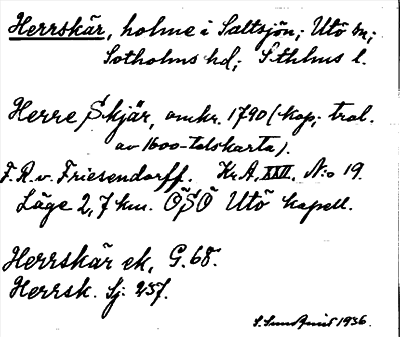 Herrskär, holme i Saltsjön; Utö sn;
Sotholms hd; Sthlms l.
Herre Skjär, omkr. 1790 (kop; trol.
av 1600-talskarta).
F. R. v. Friesendorff. Kr.A. XXII. N:o 19.
Läge 2,7 km. ÖSÖ Utö kapell.
Herrskär ek, G. 68.
Herrsk. Sj: 257.
S. Sundquist 1936.